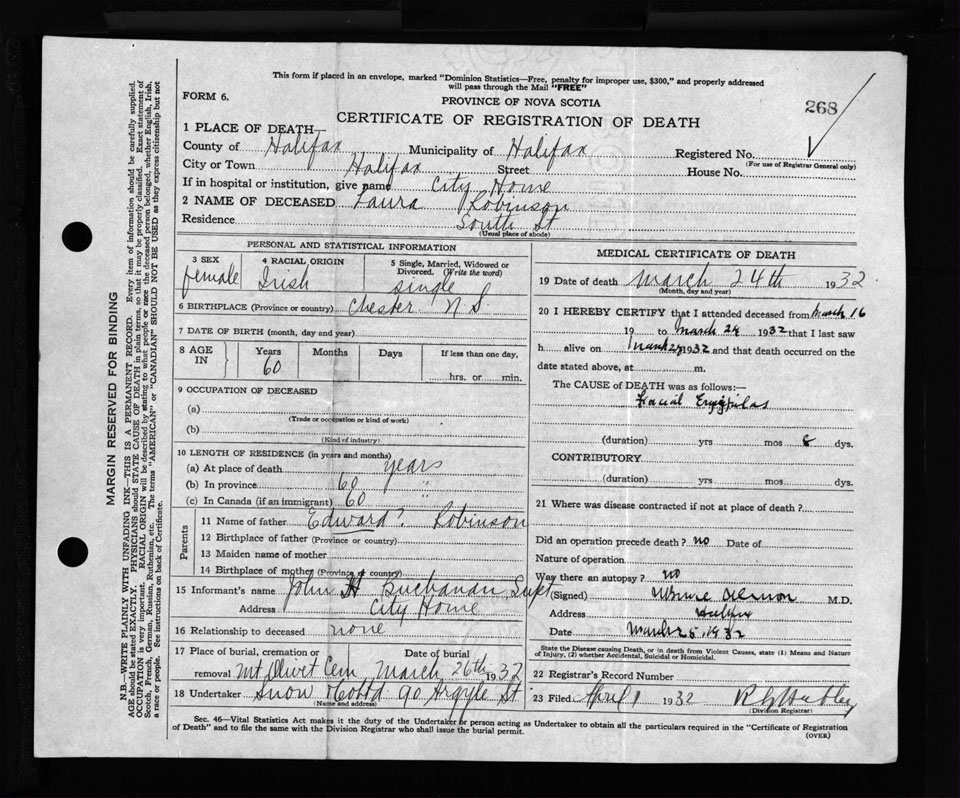 This form if placed in an envelope, marked "Dominion Statistics—Free, penalty for improper use, $300," and properly addressed
will pass through the Mail "FREE"
FORM 6.
PROVINCE OF NOVA SCOTIA
268
CERTIFICATE OF REGISTRATION OF DEATH
1 PLACE OF DEATH—
County of Halifax Municipality of Halifax Registered No.
(For use of Registrar General only)
City or Town Halifax Street House No.
If in hospital or institution, give name City Home
2 NAME OF DECEASED Laura Robinson
Residence South St
(Usual place of abode)
PERSONAL AND STATISTICAL INFORMATION
3 SEX 4 RACIAL ORIGIN 5 Single, Married, Widowed or
Divorced. (Write the word)
female Irish single
6 BIRTHPLACE (Province or country) Chester N S
7 DATE OF BIRTH (month, day and year)
8 AGE IN Years Months Days If less than one day,
60 hrs. or min.
9 OCCUPATION OF DECEASED
(a)
(Trade or occupation or kind of work)
(b)
(Kind of industry)
10 LENGTH OF RESIDENCE (in years and months)
(a) At place of death years
(b) In province 60 "
(c) In Canada (if an immigrant) 60 "
Parents
11 Name of father Edward? Robinson
12 Birthplace of father (Province or country)
13 Maiden name of mother
14 Birthplace of mother (Province or country)
15 Informant's name John H Buchanan, Supt
Address City Home
16 Relationship to deceased none
17 Place of burial, cremation or Date of burial
removal Mt Olivet Cem March 26th 1932
18 Undertaker Snow Co Ltd 90 Argyle St
(Name and address)
MEDICAL CERTIFICATE OF DEATH
19 Date of death March 24th 1932
(Month, day and year)
20 I HEREBY CERTIFY that I attended deceased from March 16
19 to March 24 1932 that I last saw
h alive on March 24 1932 and that death occurred on the
date stated above, at m.
The CAUSE of DEATH was as follows:—
Facial Erysipilas
(duration) yrs mos 8 dys.
CONTRIBUTORY
(duration) yrs mos dys.
21 Where was disease contracted if not at place of death?
Did an operation precede death? no Date of
Nature of operation
Was there an autopsy? no
(Signed) M.D.
Address Halifax
Date March 25, 1932
State the Disease causing Death, or in death from Violent Causes, state (1) Means and Nature
of Injury, (2) whether Accidental, Suicidal or Homicidal.
22 Registrar's Record Number
23 Filed April 1 1932
(Division Registrar)
Sec. 46—Vital Statistics Act makes it the duty of the Undertaker or person acting as Undertaker to obtain all the particulars required in the "Certificate of Registration
of Death" and to file the same with the Division Registrar who shall issue the burial permit.
(OVER)
MARGIN RESERVED FOR BINDING
N.B.—WRITE PLAINLY WITH UNFADING INK—THIS IS A PERMANENT RECORD. Every item of information should be carefully supplied.
AGE should be stated EXACTLY. PHYSICIANS should STATE CAUSE OF DEATH in plain terms, so that it may be properly classified. Exact statement of
OCCUPATION is very important. RACIAL ORIGIN will be described by stating to what people or race the deceased person belonged, whether English, Irish,
Scotch, French, German, Russian, Ruthenian, etc. The terms "AMERICAN" or "CANADIAN" SHOULD NOT BE USED as they express citizenship but not
a race or people. See instructions on back of Certificate.